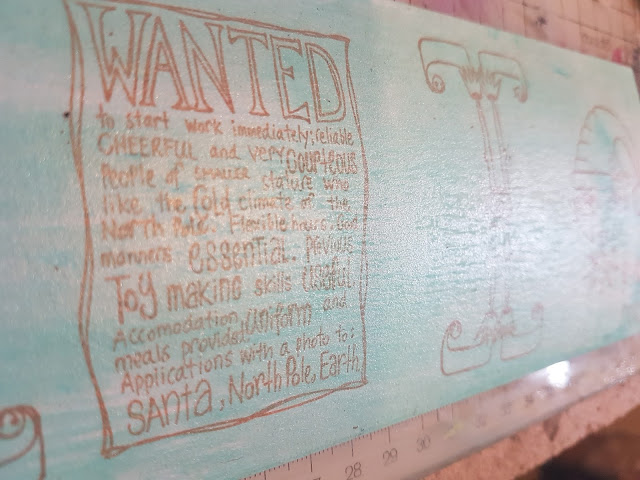 WANTED
to start work immediately; reliable
CHEERFUL and very Courteous
People of smaller stature who
like the cold climate of the
North Pole. Flexible hours. Good
manners essential. Previous
Toy making skills useful.
Accomodation, uniform and
meals provided
Applications with a photo to:
Santa, North Pole, Earth
28 29 30